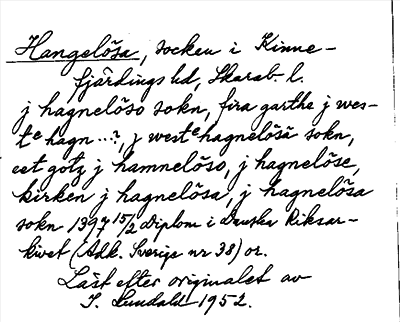 Hangelösa, socken i Kinne-
fjärdings hd, Skarab. l.
j hagnelöso sokn, fira garthe j wes-
te hagn...?, j weste hagnelösä sokn,
eet gotz j hamnelöso, j hagnelöse,
kirken j hagnelösa, j hagnelösa
sokn 1397 15/2 diplom i Danska Riksar-
kivet (Adk. Sverige nr 38) or.
Läst efter originalet av
I. Lundahl 1952.